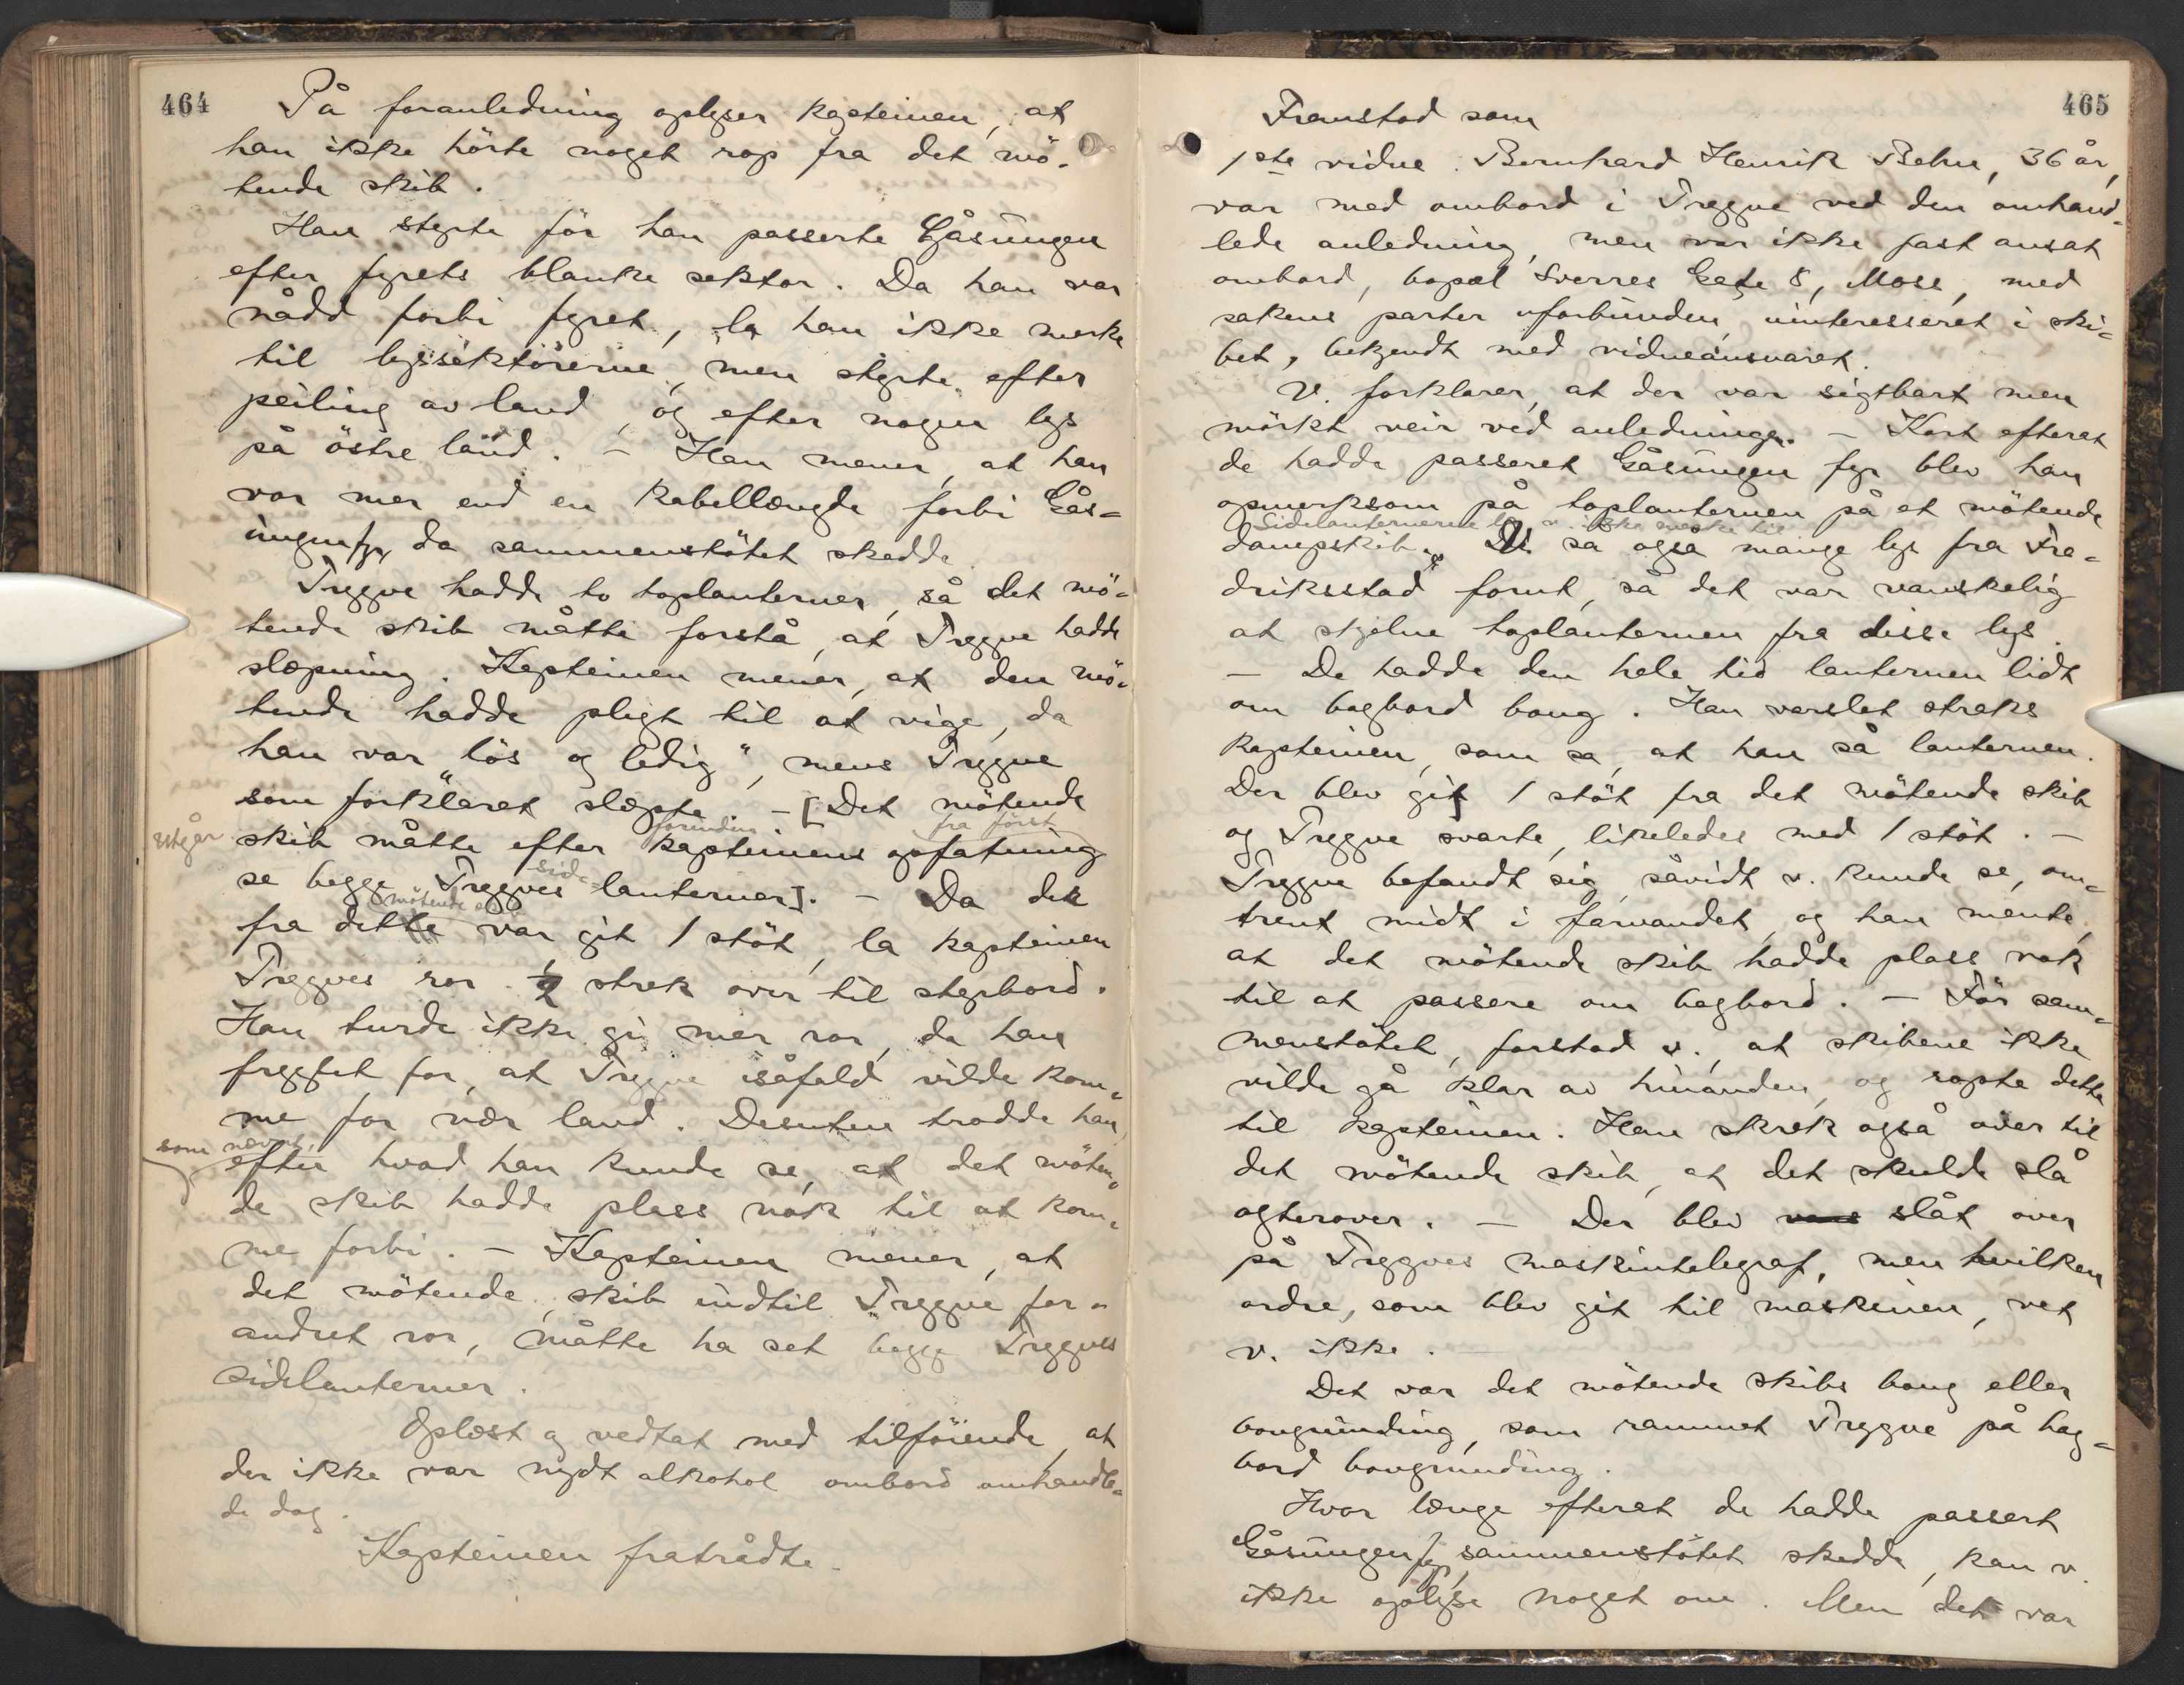 464
På foranledning oplyser kapteinen, at
han ikke hörte noget rop fra det mö-
tende skib.
Han styrte för han passerte Gåsungen
efter fyrets blanke sektor. Da han var
nådd forbi fyret, la han ikke merke
til lyssektorerne, men styrte efter
peiling av land, og efter nogen lys
på östre land. – Han mener, at han
var mer end en kabellængde forbi Gås-
ungen fyr, da sammenstötet skedde.
Tryggve hadde to toplanterner, så det mö-
tende skib måtte forstå, at Tryggve hadde
slæpning. Kapteinen mener, at den mö-
tende hadde pligt til at vige, da
han var "lös og ledig", mens Tryggve
som forklaret slæpte. – [Det mötende
utgår skib måtte efter kapteinens opfatning
forinden fra först
se begge Tryggves sidelanterner]. – Da det
mötende skib
fra dette var git 1 stöt, la kapteinen
Tryggves ror ½ strek over til styrbord.
Han turde ikke gi mer ror, da han
frygtet for, at Tryggve isåfald vilde kom-
me for nær land. Desuten trodde han,
som nævnt,
efter hvad han kunde se, at det möten-
de skib hadde plass nok til at kom-
me forbi. – Kapteinen mener, at
det mötende skib indtil Tryggve for-
andret ror, måtte ha set begge Tryggves
sidelanterner.
Oplæst og vedtat med tilföiende, at
der ikke var nydt alkohol ombord omhandle-
de dag.
Kapteinen fratrådte.
465
Fremstod som
1ste vidne. Bernhard Henrik Behn, 36 år,
var med ombord i Tryggve ved den omhand-
lede anledning, men var ikke fast ansat
ombord, bopæl Sverres Gate 8, Moss, med
sakens parter uforbunden, uinteresseret i ski-
bet, bekjendt med vidneansvaret.
V. forklarer, at der var sigtbart men
mörkt veir ved anledningen. – Kort efterat
de hadde passeret Gåsungen fyr blev han
opmerksom på toplanternen på et mötende
Sidelanternerne la v. ikke merke til
dampskib. V. sa også mange lys fra Fre-
driksstad forut, så det var vanskelig
at skjelne toplanternen fra disse lys.
– De hadde den hele tid lanternen lidt
om bagbord boug. Han varslet straks
kapteinen, som sa, at han så lanternen.
Der blev git 1 stöt fra det mötende skib
og Tryggve svarte, likeledes med 1 stöt. –
Tryggve befandt sig, såvidt v. kunde se, om-
trent midt i farvandet, og han mente,
at det mötende skib hadde plass nok
til at passere om bagbord. – För sam-
menstötet, forstod v., at skibene ikke
vilde gå klar av hinanden, og ropte dette
til kapteinen. Han skrek også over til
det mötende skib, at det skulde slå
agterover. – Der blev slåt over
på Tryggves maskintelegraf, men hvilken
ordre, som blev git til maskinen, vet
v. ikke.
Det var det mötende skibs boug eller
bougrunding, som rammet Tryggve på bag-
bord bougrunding.
Hvor længe efterat de hadde passert
Gåsungen fyr, sammenstötet skedde, kan v.
ikke oplyse noget om. Men det var